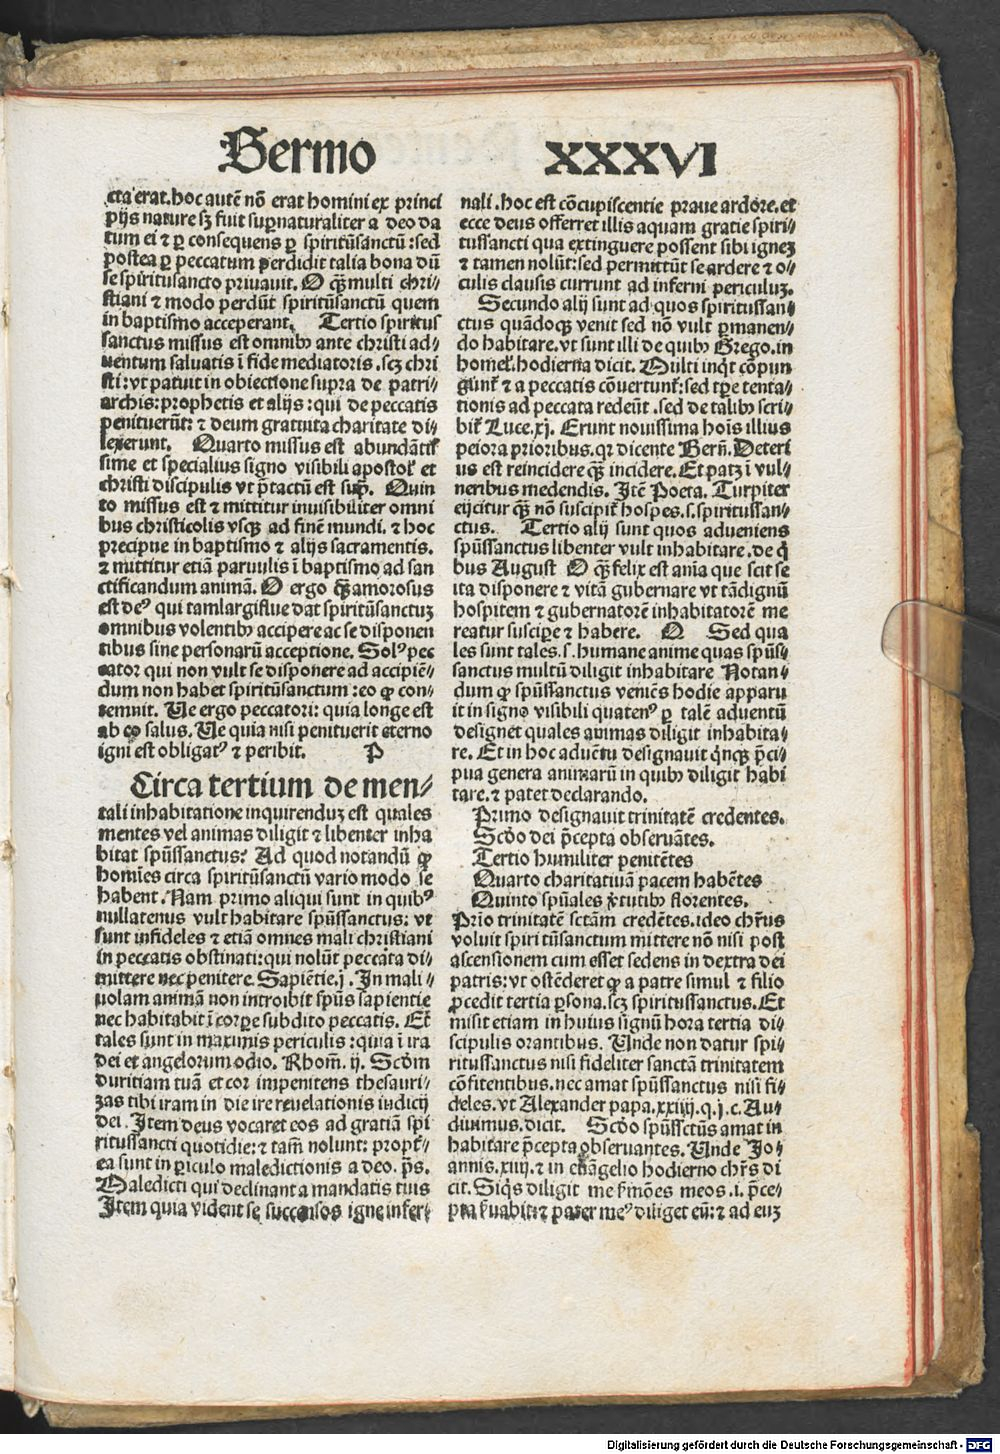 Sermo XXXVI
cta erat. hoc autē nō erat homini ex princi
pijs nature sꝫ fuit suꝑnaturaliter a deo da
tum ei ⁊ ꝑ consequens ꝑ spiritūsanctū: sed
postea ꝑ peccatum perdidit talia bona dū
se spiritusancto priuauit. O qꝫ multi chri⸗
stiani ⁊ modo perdūt spiritūsanctū quem
in baptismo acceperant. Tertio spiritus
sanctus missus est omnibꝰ ante christi ad⸗
uentum saluatis ī fide mediatoris .scꝫ chri
sti: vt patuit in obiectione supra de patri⸗
archis: prophetis et alijs: qui de peccatis
penituerūt: ⁊ deum gratuita charitate di⸗
lexerunt. Quarto missus est abundātis
sime et specialius signo visibili apostoł et
christi discipulis vt p̄tactū est suꝑ. Quin
to missus est ⁊ mittitur inuisibiliter omni
bus christicolis vsqꝫ ad finē mundi. ⁊ hoc
precipue in baptismo ⁊ alijs sacramentis.
⁊ mittitur etiā paruulis ī baptismo ad san
ctificandum animā. O ergo qꝫ amorosus
est deꝰ qui tam largiflue dat spiritūsanctuꝫ
omnibus volentibꝰ accipere ac se disponen
tibus sine personarū acceptione. Solꝰ pec
cator qui non vult se disponere ad accipiē⸗
dum non habet spiritūsanctum: eo ꝙ con⸗
temnit. Ue ergo peccatori: quia longe est
ab eo salus. Ue quia nisi penituerit eterno
igni est obligatꝰ ⁊ peribit. P
Circa tertium de men⸗
tali inhabitatione inquirenduꝫ est quales
mentes vel animas diligit ⁊ libenter inha
bitat spūssanctus: Ad quod notandū ꝙ
homīes circa spiritūsanctū vario modo se
habent. Nam primo aliqui sunt in quibꝰ
nullatenus vult habitare spūssanctus: vt
sunt infideles ⁊ etiā omnes mali christiani
in peccatis obstinati: qui nolūt peccata di⸗
mittere nec penitere. Sapiētie .j. In mali⸗
uolam animā non introibit spūs sapientie
nec habitabit ī corpꝑe subdito peccatis. Et̄
tales sunt in maximis periculis: quia ī ira
dei et angelorum odio. Rhom̄. ij. Scd̄m
duritiam tuā et cor impenitens thesauri⸗
zas tibi iram in die ire reuelationis iudicij
dei. Item deus vocaret eos ad gratiā spi
ritussancti quotidie: ⁊ tam̄ nolunt: propt̄⸗
ea sunt in ꝑiculo maledictionis a deo. p̄s.
Maledicti qui declinant a mandatis tuis
Item quia vident se succensos igne infer⸗
nali. hoc est cōcupiscentie praue ardore. et
ecce deus offerret illis aquam gratie spiri⸗
tussancti qua extinguere possent sibi igneꝫ
⁊ tamen nolūt: sed permittūt se ardere ⁊ o⸗
culis clausis currunt ad inferni periculuꝫ.
Secundo alij sunt ad quos spiritussan⸗
ctus quādoqꝫ venit sed nō vult ꝑmanen⸗
do habitare. vt sunt illi de quibꝰ Grego. in
homeł. hodierna dicit. Multi inqͥt cōpun
gūnt̄ ⁊ a peccatis cōuertunt̄: sed tꝑe tenta⸗
tionis ad peccata redeūt. sed de talibꝰ scri⸗
bit̄ Luce. xj. Erunt nouissima hoīs illius
peiora prioribus. qꝛ dicente Bern̄. Deteri
us est reincidere qꝫ incidere. Et patꝫ ī vul⸗
neribus medendis. Itē Poeta. Turpiter
eijcitur qꝫ nō suscipit̄ hospes. s. spiritussan⸗
ctus. Tertio alij sunt quos adueniens
spūssanctus libenter vult inhabitare. de qͥ
bus August O qꝫ felix est aīa que scit se
ita disponere ⁊ vitā gubernare vt tā dignū
hospitem ⁊ gubernatorē inhabitatorē me
reatur suscipe ⁊ habere. Q Sed qua
les sunt tales. s. humane anime quas spūs⸗
sanctus multū diligit inhabitare Notan⸗
dum ꝙ spūssanctus veniēs hodie apparu
it in signo visibili quatenꝰ ꝑ talē aduentū
designet quales animas diligit inhabita⸗
re. Et in hoc aduētu designauit qͥnqꝫ p̄ci⸗
pua genera animarū in quibꝰ diligit habi
tare. ⁊ patet declarando.
Primo designauit trinitatē credentes.
Scd̄o dei p̄cepta obseruātes.
Tertio humiliter penitētes
Quarto charitatiuā pacem habētes
Quinto spūales v̄tutibꝰ florentes.
Prīo trinitatē sctām credētes. ideo chr̄us
voluit spiritūsanctum mittere nō nisi post
ascensionem cum esset sedens in dextra dei
patris: vt ostēderet ꝙ a patre simul ⁊ filio
ꝓcedit tertia ꝑsona. scꝫ spiritussanctus. Et
misit etiam in huius signū hora tertia di⸗
scipulis orantibus. Unde non datur spi⸗
ritussanctus nisi fideliter sanctā trinitatem
cōfitentibus. nec amat spūssanctus nisi fi⸗
deles. vt Alexander papa. xxiiij. q. j. c. Au⸗
diuimus. dicit. Scd̄o spūssctūs amat in
habitare p̄cepta obseruantes. Unde Jo⸗
annis. xiiij. ⁊ in euāgelio hodierno chr̄s di
cit. Siqͥs diligit me s̄mōes meos. i. p̄ce⸗
pta s̄uabit: ⁊ pater meꝰ diliget eū: ⁊ ad euꝫ
Digitalisierung gefördert durch die Deutsche Forschungsgemeinschaft - DFG